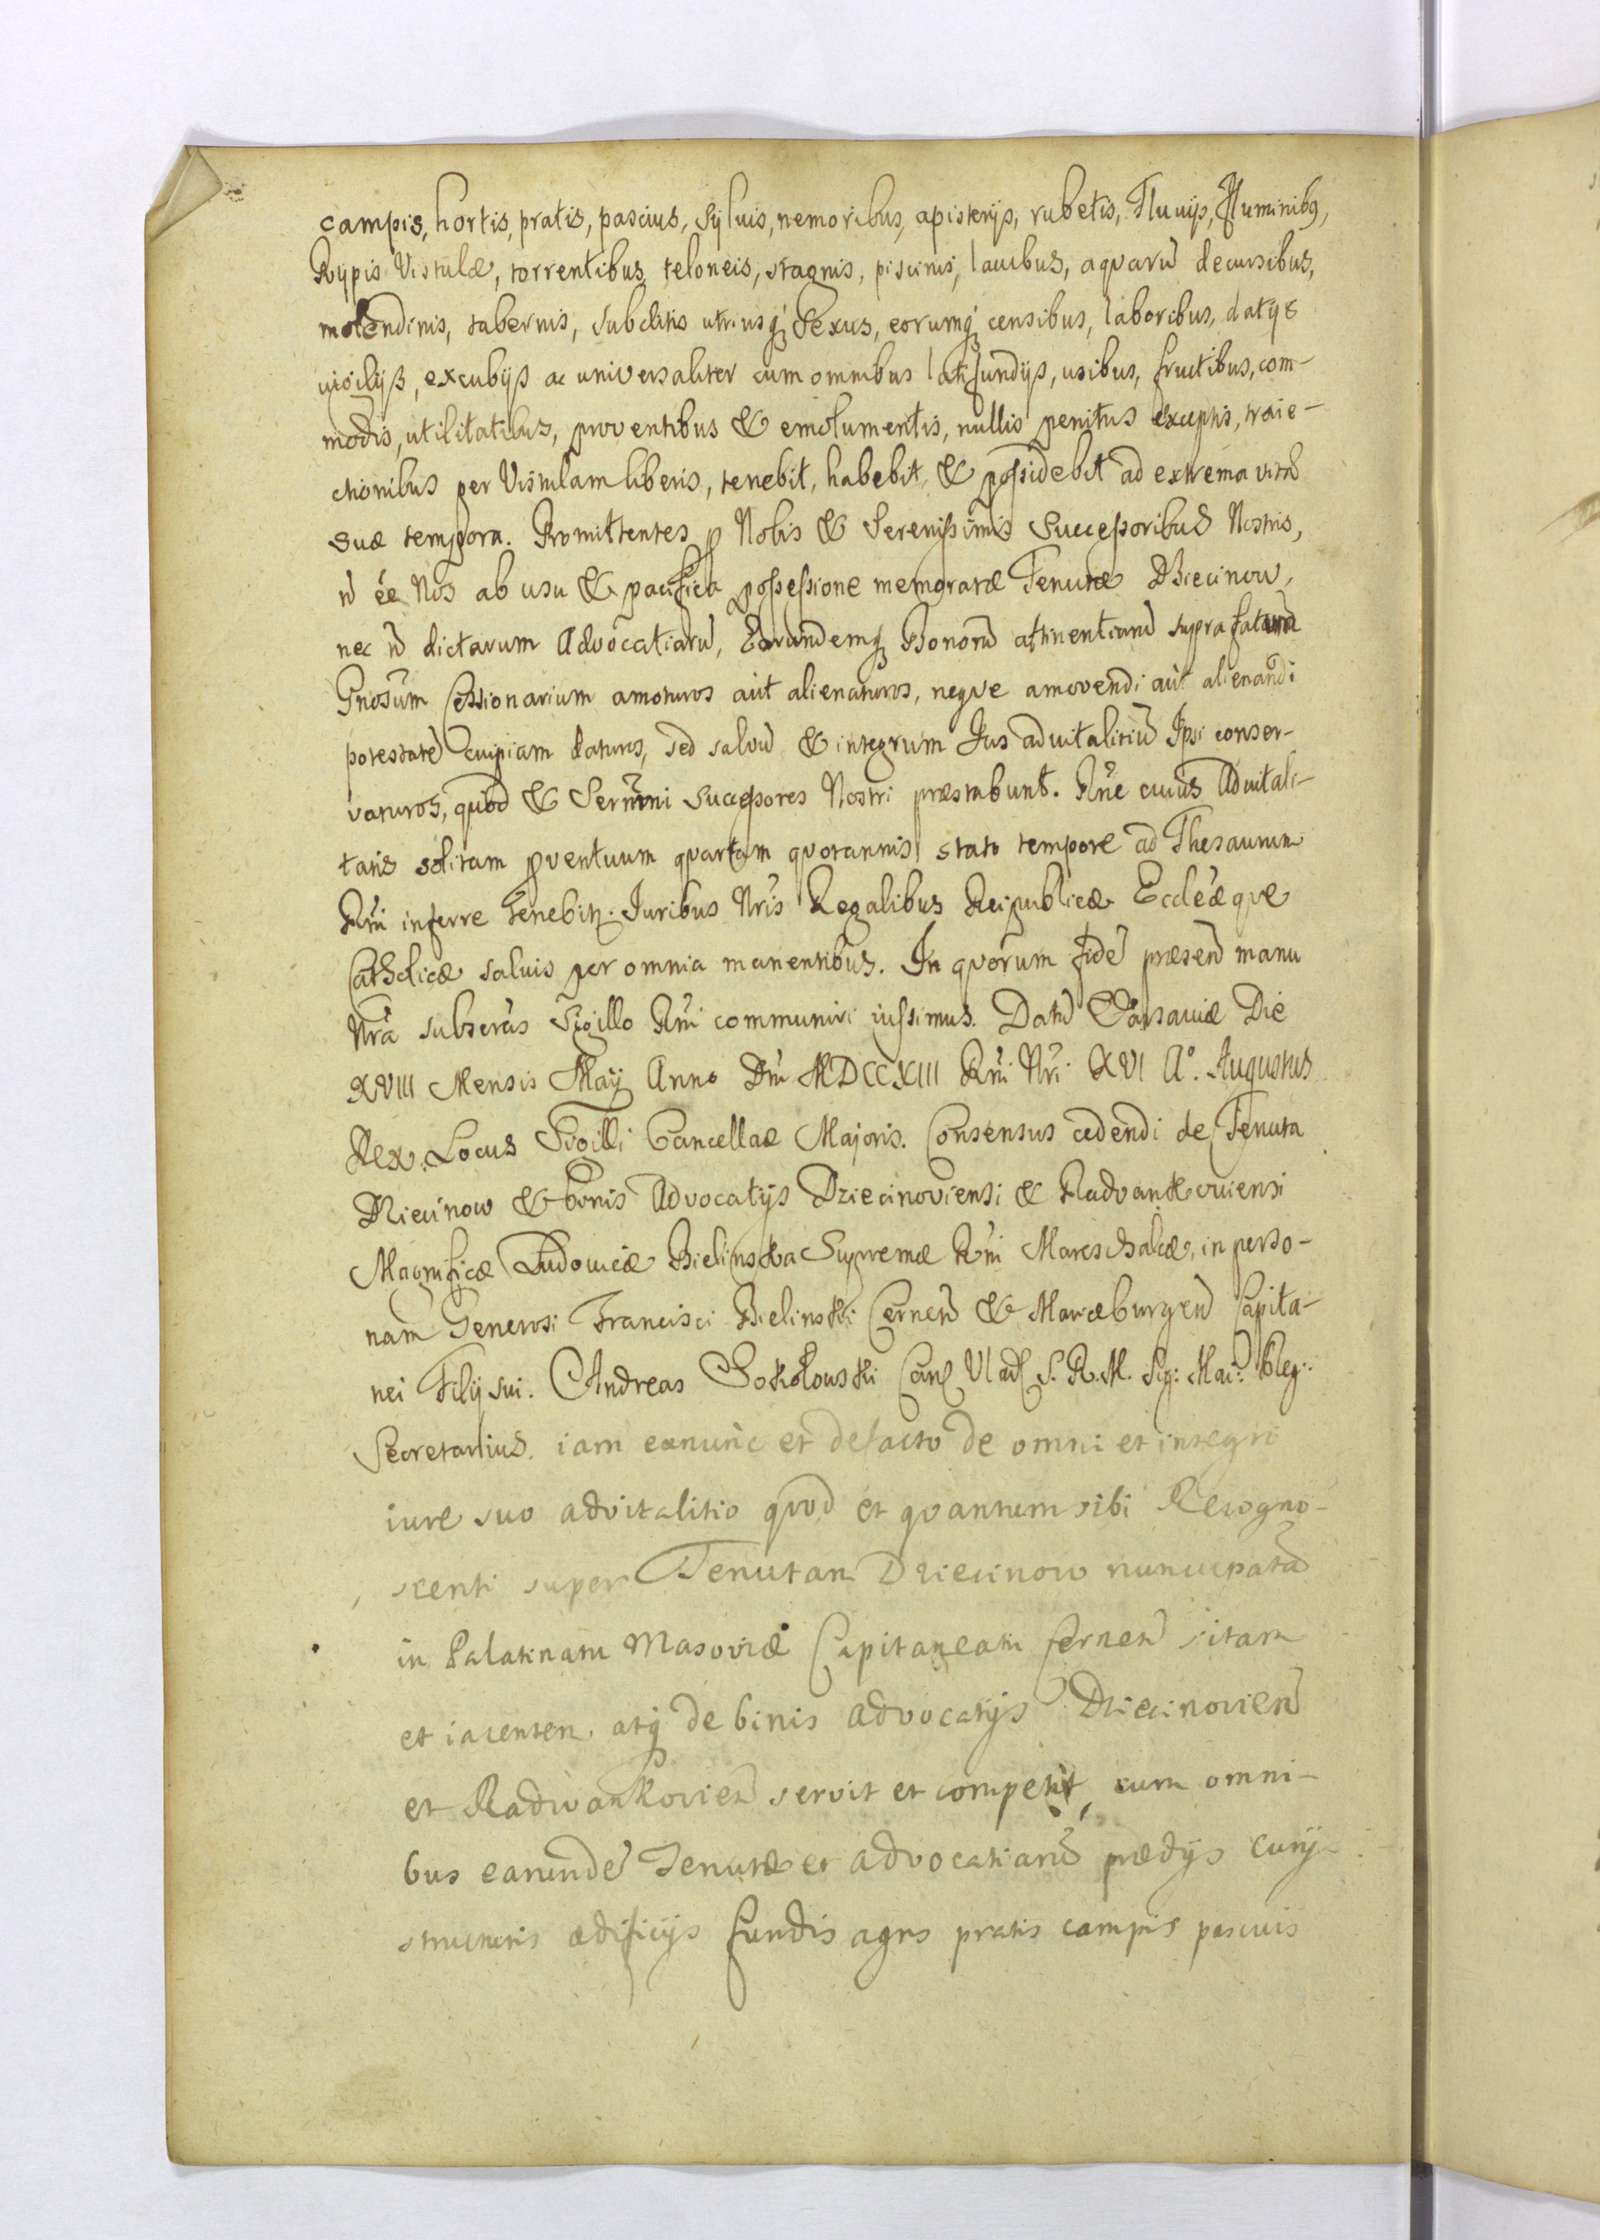 campis, hortis, pratis, pascius, Sÿluis, nemoribus, apisterijs, rubetis, Fluuijs, Fluminibg,
Rypis Vistulæ, torrentibus teloneis, stagnis, piscinis, lacubus, aquarū decursibus,
molendinis, tabernis, subditis utriusq́ Sexus, eorumq́ censibus, laboribus, datijs
vigilijs, excubijs ac universaliter cum omnibus latifundijs, usibus, fructibus, com-
modis, utilitatibus, proventibus & emolumentis, nullis penitus exceptis, traie-
ctionibus per Vistulam liberis, tenebit, habebit, & possidebit ad extrema vitæ
suæ tempora. Promittentes p Nobis & Serenissimis Successoribus Nostris,
n̄ éé Nos ab usu & pacifica possessione memoratæ Tenutæ Dziecinow,
nec n̄ dictarum Advocatiarū, Earundemq Bonorū attinentiarū supra fatum
Gnosum Cessionarium amoturos aut alienaturos, neque amovendi aut alienandi
potestatē cuipiam daturos, sed salvū & integrum Jus aduitalitiū Ipsi conser-
vaturos, quod & Sernmi Successores Nostri præstabunt. Rñe cuius Aduitali-
tatis solitam pventuum quartam quotannis stato tempore ad Thesaurum
Rñi inferre tenebit. Juribus Nris Regalibus Reipublicæ Eccléæque
Catholicæ saluis per omnia manentibus. In quorum fidē præsen̄ manu
Nrâ subscras Sigillo Rñi communiri iussimus. Datū Varsaviæ Die
XVIII Mensis Maij Anno Dñi MDCCXIII Rñi Nri XVI Aº. Augustus
Rex. Locus Sigilli Cancellæ Majoris. Consensus cedendi de Tenuta
Dziecinow & bonis Advocatijs Dziecinoviensi & Radvankoviensi
Magnificæ Ludouicæ Bielinska Supremæ Rñi Mareschalcæ, in perso-
nam Generosi Francisci Bielinski Cernen̄ & Marceburgen̄ Capita-
nei Filij sui. Andreas Sokołouski Can Vlad S. R. M. Sig: Mai:
Secretarius. iam exnunc et defacto de omni et integro
iure suo advitalitio quod et quantum sibi Recogno-
scenti super Tenutam Dziecinow nuncupatā
in Palatinatu Masoviæ Capitaneatu Cernen̄ sitam
et iacentem atq́ de binis advocatijs Dziecinovien̄
et Radwankovien̄ servit et competit, cum omni-
bus earundē Tenutæ et advocatiarū prædijs curijs
structuris ædificijs fundis agris pratis campis pascuis